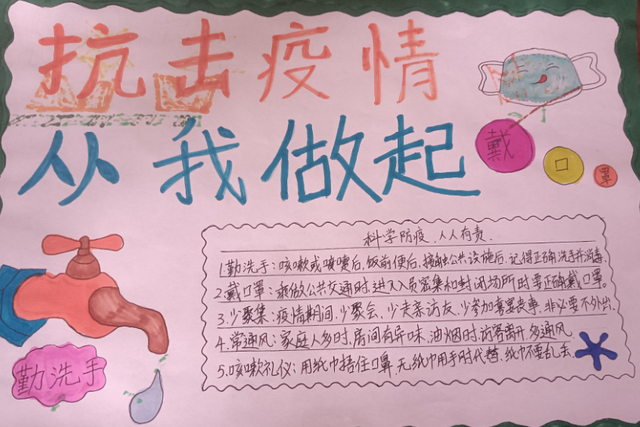 抗击疫情
从我做起
戴
口
罩
科学防疫，人人有责.
1.勤洗手：咳嗽或喷嚏后、饭前便后、接触公共设施后，记得正确洗手并消毒.
2.戴口罩：乘做公共交通时进入人员密集和封闭场所时要正确戴口罩。
3.少聚集：疫情期间，少聚会、少走亲访友、少参加喜宴丧事，非必要不外出.
4.常通风：家庭人多时，房间有异味、油烟时，访客离开多通风.
5.咳嗽礼仪：用纸巾捂住口罩，无纸巾用手肘代替，纸巾不要乱丢
勤洗手